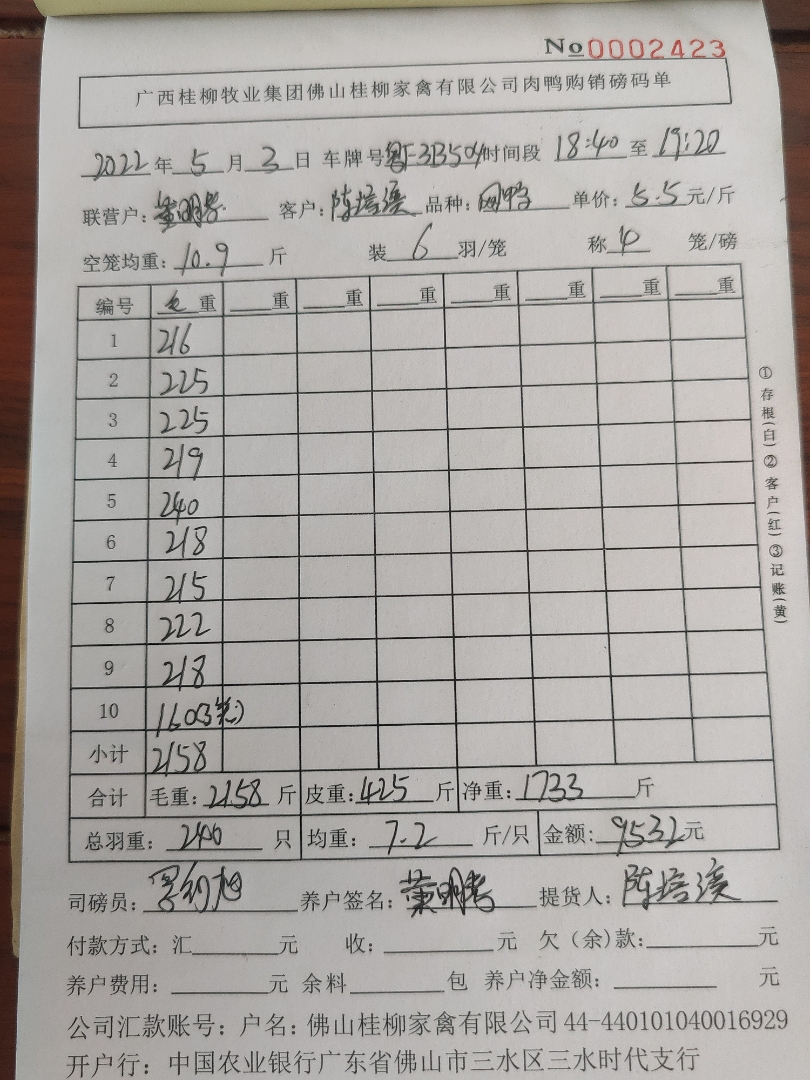 No 0002423
广西桂柳牧业集团佛山桂柳家禽有限公司肉鸭购销磅码单
2022年5月3日 车牌号粤F-3B504时间段 18:40至19:20
联营户: 客户:陈 品种: 单价:5.5元/斤
空笼均重:10.9斤 装6羽/笼 称4笼/磅
编号 毛重 重 重 重 重 重 重 重
1 216
2 225
3 225
4 219
5 240
6 218
7 215
8 222
9 218
10 160(3笼)
小计 2158
合计 毛重:2158斤 皮重:425斤 净重:1733斤
总羽重:240只 均重:7.2斤/只 金额:9532元
司磅员: 养户签名: 提货人:陈
付款方式:汇 元 收: 元 欠(余)款: 元
养户费用: 元 余料 包 养户净金额: 元
公司汇款账号:户名:佛山桂柳家禽有限公司44-440101040016929
开户行:中国农业银行广东省佛山市三水区三水时代支行
①存根(白)②客户(红)③记账(黄)